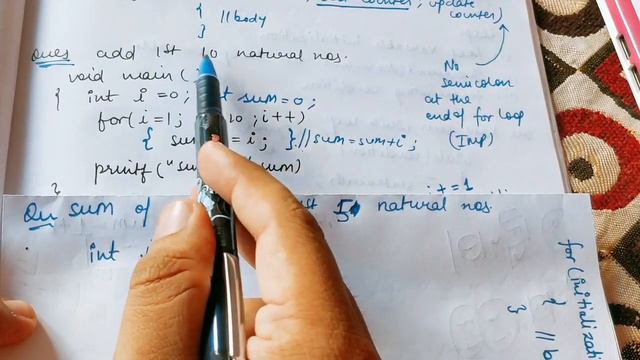 counter, update
counter)
{ //body
}
Ques add 1st 10 natural nos.
void main(
{ int i=0; sum=0;
for(i=1; 10; i++)
{ sum = i; } //sum=sum+i;
printf("su sum)
}
No
semicolon
at the
end of for loop
(IMP)
i+=1
Qu sum of 5 natural nos.
int
for(initializati
{ //b
}